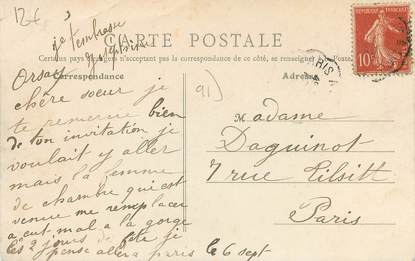 12€
je t'embrasse
Joséphine
CARTE POSTALE
Certains pays étrangers n'acceptant pas la correspondance de ce côté, se renseigner
Correspondance
Adresse
RÉPUBLIQUE FRANÇAISE
10c
POSTES
PARIS
91)
Orsay
chère soeur je
te remercie bien
de ton invitation je
voulait y aller
mais la femme
de chambre qui est
venue me remplacer
a eut mal a la gorge
les 2 jours de fete je
pense aller a paris
le 6 sept
Madame
Daguinot
7 rue Tilsitt
Paris